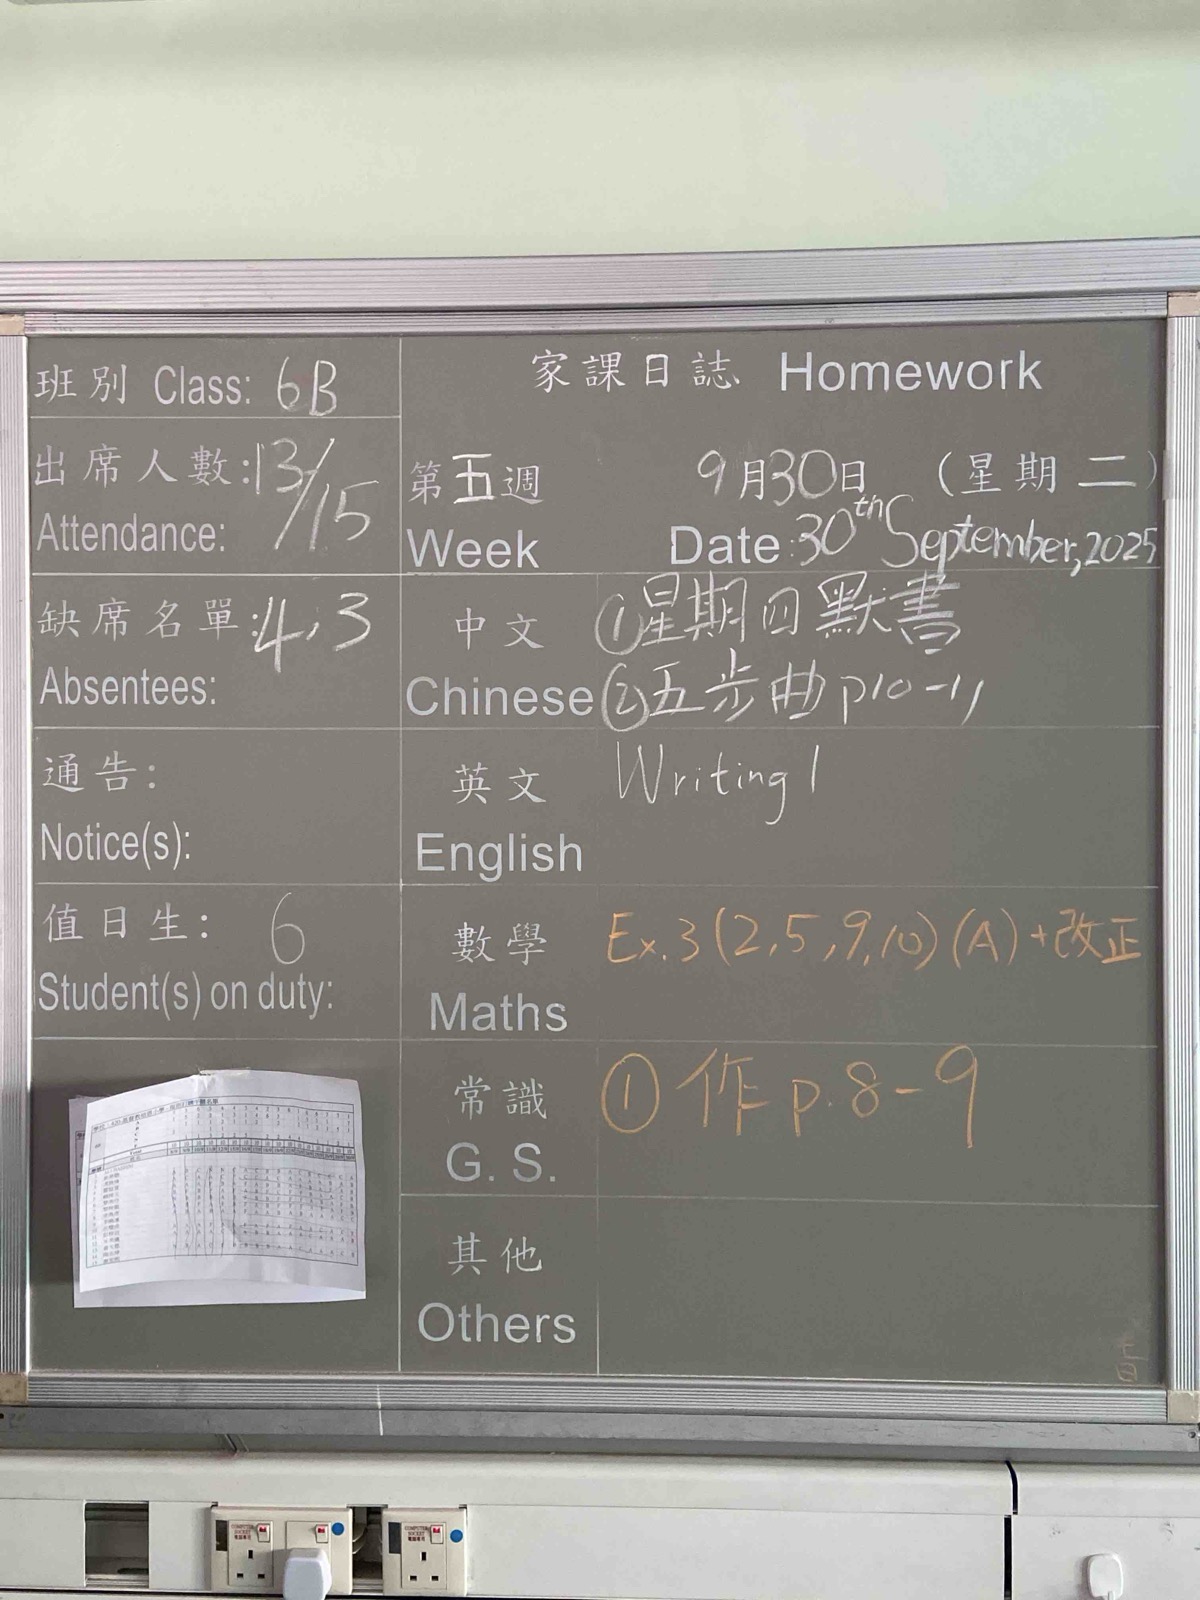 班別 Class: 6B
出席人數: 13/15
Attendance:
缺席名單: 4, 3
Absentees:
通告:
Notice(s):
值日生: 6
Student(s) on duty:
家課日誌 Homework
第五週 9月30日 (星期二)
Week Date: 30th September, 2025
中文 ①星期四默書
Chinese ②五步曲 p10-11
英文 Writing 1
English
數學 Ex.3 (2,5,9,10) (A) + 改正
Maths
常識 ① 作 p.8-9
G. S.
其他
Others
COMPUTER SOCKET
COMPUTER SOCKET